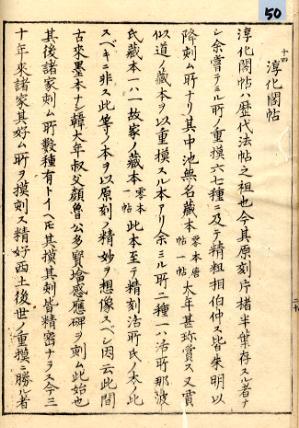 50
十四
淳化閣帖
淳化閣帖ハ歴代法帖之祖也今其原刻片楮半葉存スル者ナ
シ余嘗テミル所ノ重摸六七種ニ及テ精粗相伯仲ス皆朱明以
降刻ム所ナリ其中池無名藏本零本唐帖一帖大年甚珍賞ス又賞
似道ノ藏本ヲ以重摸スル本アリ余ミル所二種一ハ活所那波
氏藏本一ハ故家ノ藏本零本一帖此本至テ精刻活所氏ノ本ノ此
スベキニ非ス此等ノ本ヲ以原刻ノ精妙ヲ想像スベシ因云此間
古來墨本ナシ韓大年叔父顏魯公多賢墖感應碑ヲ刻ム此始也
其後諸家刻ム所數種有トイヘ𪜈其摸其刻皆精密ナラス今三
十年來諸家其好ム所ヲ摸刻ス精好西土後世ノ重摸ニ勝ル者